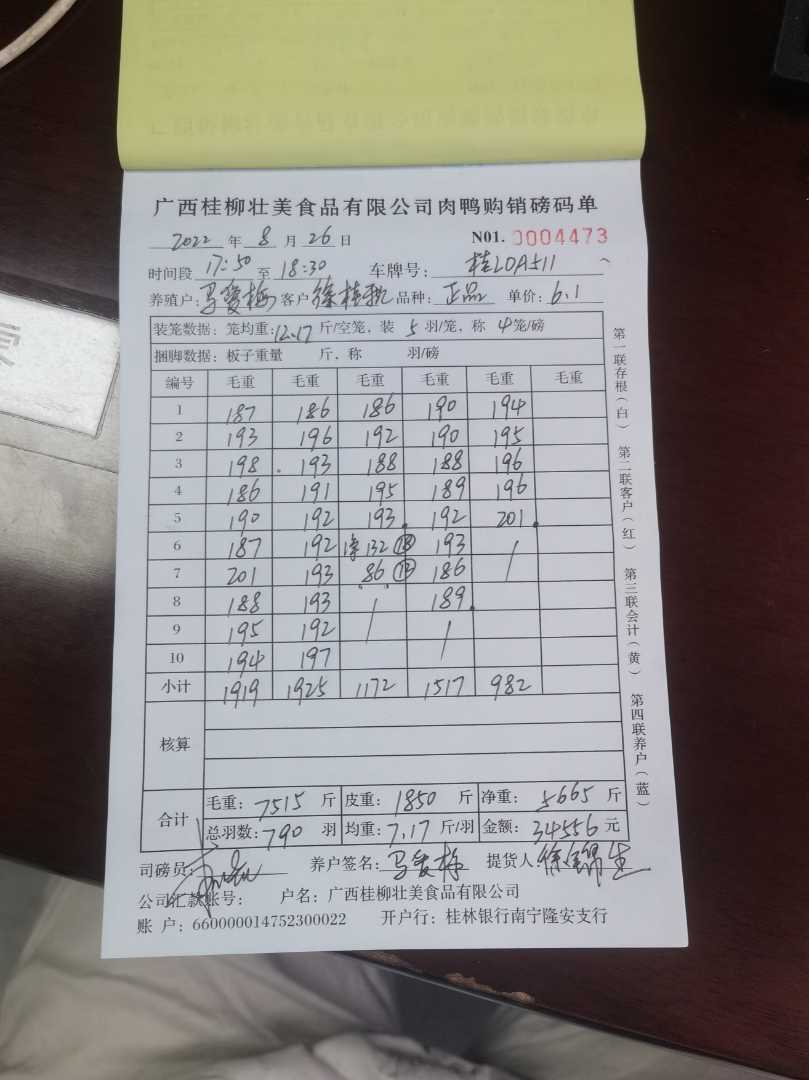 广西桂柳壮美食品有限公司肉鸭购销磅码单
2022 年 8 月 26 日 N01. 0004473
时间段 17:50 至 18:30 车牌号: 桂LDA511
养殖户: 马爱梅 客户 徐桂秋 品种: 正品 单价: 6.1
装笼数据: 笼均重: 12.17 斤/空笼, 装 5 羽/笼, 称 4 笼/磅
捆脚数据: 板子重量 斤, 称 羽/磅
编号 毛重 毛重 毛重 毛重 毛重 毛重
1 187 186 186 190 194
2 193 196 192 190 195
3 198 193 188 188 196
4 186 191 195 189 196
5 190 192 193 192 201
6 187 192 132 193 /
7 201 193 86 186
8 188 193 / 189
9 195 192 / /
10 194 197
小计 1919 1925 1172 1517 982
核算
合计 毛重: 7515 斤 皮重: 1850 斤 净重: 5665 斤
总羽数: 790 羽 均重: 7.17 斤/羽 金额: 34556 元
司磅员: 养户签名: 马爱梅 提货人:
公司汇款账号: 户名: 广西桂柳壮美食品有限公司
账 户: 660000014752300022 开户行: 桂林银行南宁隆安支行
第一联存根(白) 第二联客户(红) 第三联会计(黄) 第四联养户(蓝)